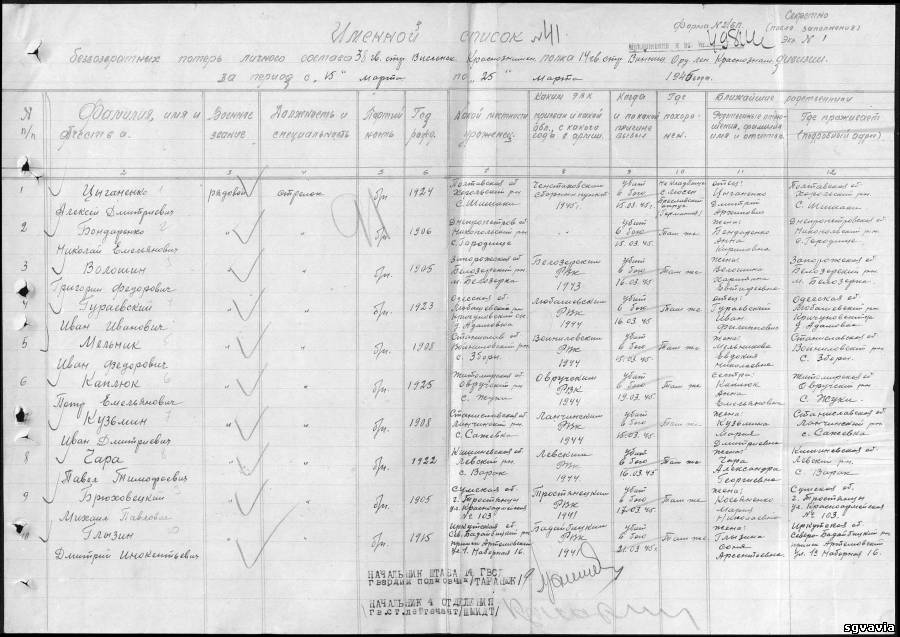 Секретно
Форма №2/БП. (после заполнения)
Экз. № 1
Именной список №41
безвозвратных потерь личного состава 38 гв. стр. Висленск. Краснознамен. полка 14 гв. стр. Винниц. Орд. Лен. Краснознам. дивизии.
за период с „15" марта по „25" марта 1945 года.
N п/п
Фамилия, имя и отчество.
Военное звание
Должность и специальность
Партийность
Год рожд.
Какой местности уроженец.
Каким РВК призван и какой обл., с какого года в армии.
Когда и по какой причине выбыл
Где похоронен.
Ближайшие родственники
Родственные отношения, фамилия имя и отчество.
Где проживает (подробный адрес)
2 3 4 5 6 7 8 9 10 11 12
1 Цыганенко Алексей Дмитриевич рядовой стрелок бп. 1924 Полтавская об. Хорольский рн. С. Шишаки Ченстоховский сборный пункт 1945г. Убит в бою 15.03.45г. На кладбище отец: Цыганенко Дмитрий Полтавская об. Хорольский рн. С. Шишаки
2 Бондаренко Николай Емельянович " " бп. 1906 Днепропетров. об. Никопольский рн С. Городище " " Убит в бою 15.03.45. Там же жена: Бондаренко Анна Кириловна Днепропетровская об Никопольский рн с. Городище
3 Волошин Григорий Федорович " " бп. 1905 Запорожская об Белозерский рн м. Белозерка Белозерский РВК 1943 Убит в бою 16.03.45 Там же жена: Волошина Евстафьевна Запорожская об Белозерский рн м. Белозерка.
4 Гураевский Иван Иванович " " бп. 1923 Одесская об. Любашевский рн д. Адамовка Любашевский РВК 1944 Убит в бою 16.03.45 Там же отец: Гураевский Иван Филиппович Одесская об Любашевский рн д. Адамовка
5 Мельник Иван Федорович " " бп. 1908 Станислав. об Войниловский рн. с. Зборы. Войниловский РВК 1944 Убит в бою 15.03.45. Там же жена: Мельникова Евдокия Николаевна Станиславская об Войниловский рн с. Зборы.
6 Каплюк Петр Емельянович " " бп. 1925 Житомирская об Овручский рн С. Жуки Овручский РВК 1944 Убит в бою 19.03.45 Там же сестра: Каплюк Анна Емельяновна Житомирская об Овручский рн С. Жуки.
7 Кузьмин Иван Дмитриевич " " бп. 1908 Станиславская об Ланчинский рн с. Сажевка Ланчинский РВК 1944 Убит в бою 15.03.45 Там же жена: Кузьмина Мария Дмитриевна Станиславская об Ланчинский рн с. Сажевка
8 Чара Павел Тимофеевич " " бп. 1922 Кишиневская об Леовский рн. Леовский РВК 1944 Убит в бою 16.03.45 Там же жена: Чара Александра Георгиевна Кишиневская об Леовский рн.
9 Брюховецкий Михаил Павлович " " бп. 1905 Сумская об г. Тростянцы ул. Красноармейская № 103 Тростянецкий РВК 1941 Убит в бою 17.03.45 Там же жена: Мария Николаевна Сумская об. г. Тростянцы ул. Красноармейская № 103.
Глызин Дмитрий Инокентьевич " " бп. 1915 Иркутская об прииск Артемовский Ул. 1. Наборная 16. РВК Убит в бою 21.03.45г. Там же жена: Глызина Соня Арсентьевна Иркутская об прииск Артемовский Ул. 1я Наборная 16.
НАЧАЛЬНИК ШТАБА 14 ГВСД
гвардии полковник /ТАРАНЮК/
НАЧАЛЬНИК 4 ОТДЕЛЕНИЯ
гв.ст.лейтенант /ШМИДТ/
sgvavia